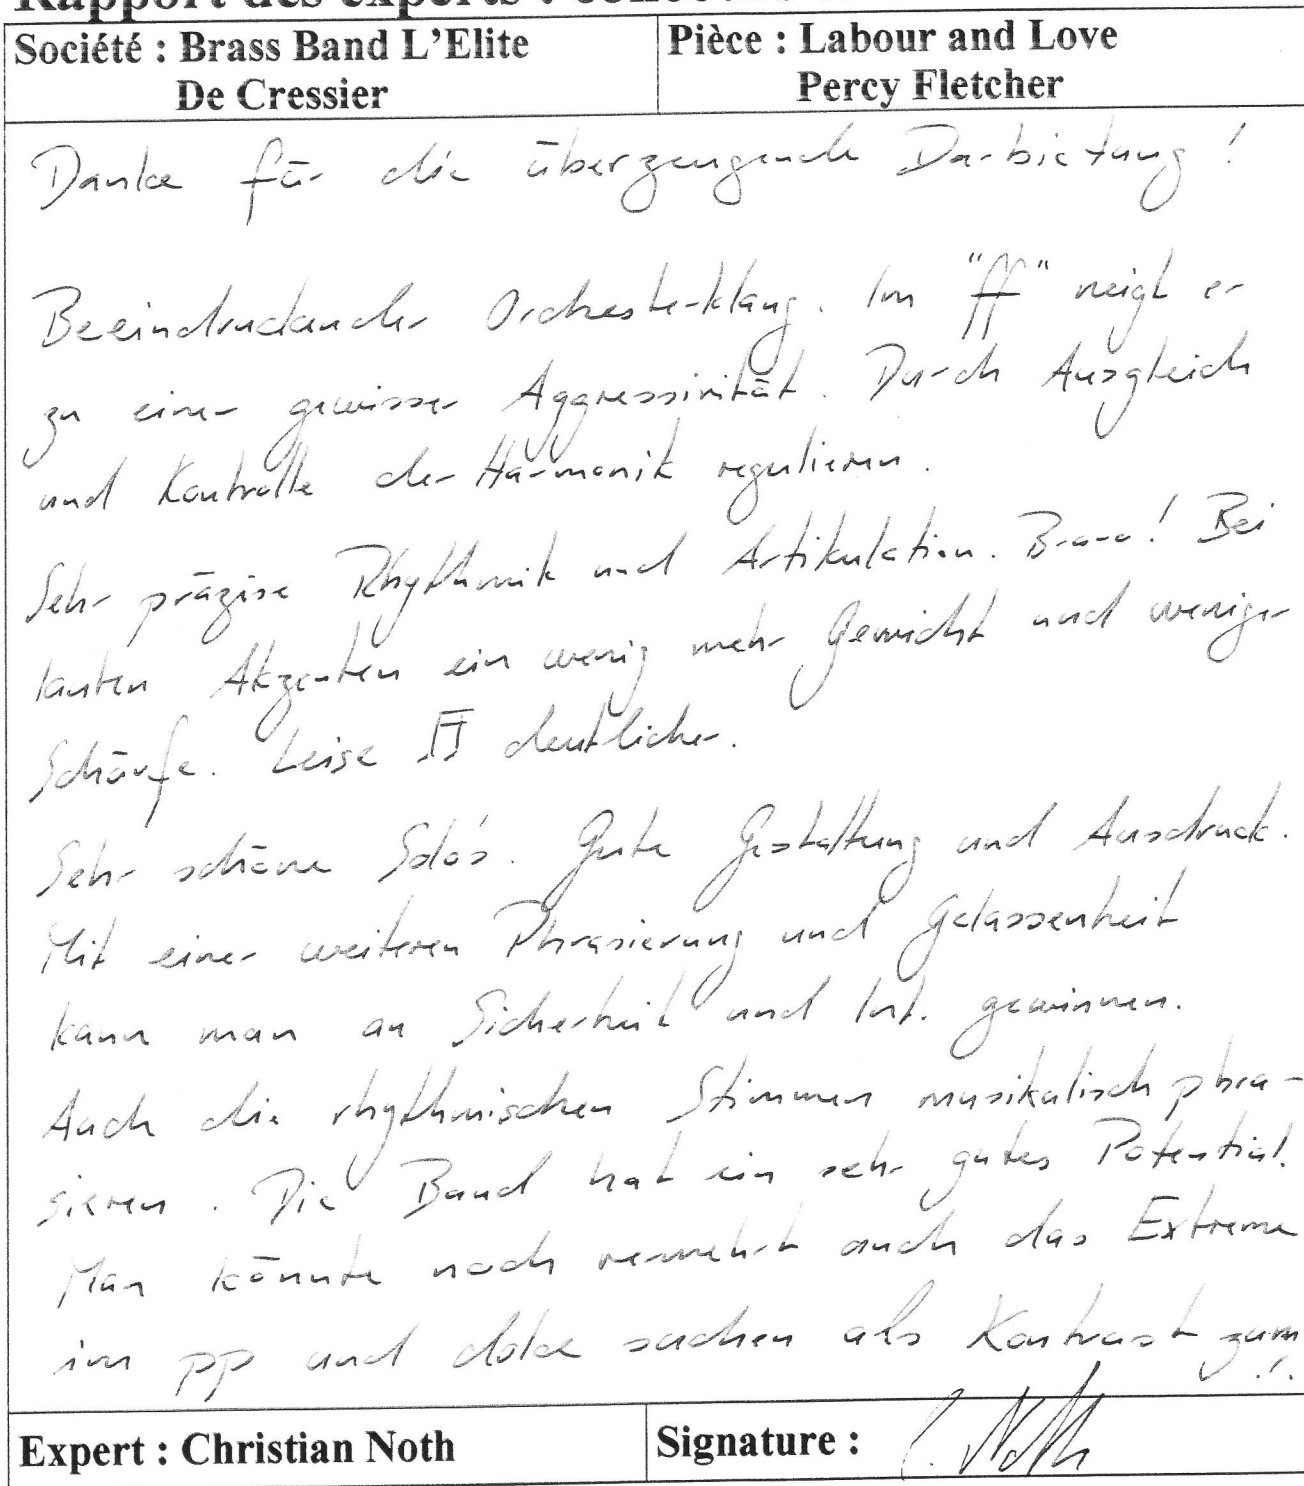 Rapport des experts :
Société : Brass Band L'Elite
De Cressier
Pièce : Labour and Love
Percy Fletcher
Danke für die überzeugende Darbietung !
Beeindruckender Orchesterklang. Im "ff" neigt er
zu einer gewissen Aggressivität. Durch Ausgleich
und Kontrolle der Harmonik regulieren.
Sehr präzise Rhythmik und Artikulation. Bravo! Bei
lauten Akzenten ein wenig mehr Gewicht und weniger
Schärfe. Leise ♫ deutlicher.
Sehr schöne Solo's. Gute Gestaltung und Ausdruck.
Mit einer weiteren Phrasierung und Gelassenheit
kann man an Sicherheit und Int. gewinnen.
Auch die rhythmischen Stimmen musikalisch phra-
sieren. Die Band hat ein sehr gutes Potential.
Man könnte noch vermehrt auch das Extreme
im pp und dolce suchen als Kontrast zum
Expert : Christian Noth
Signature : C. Noth